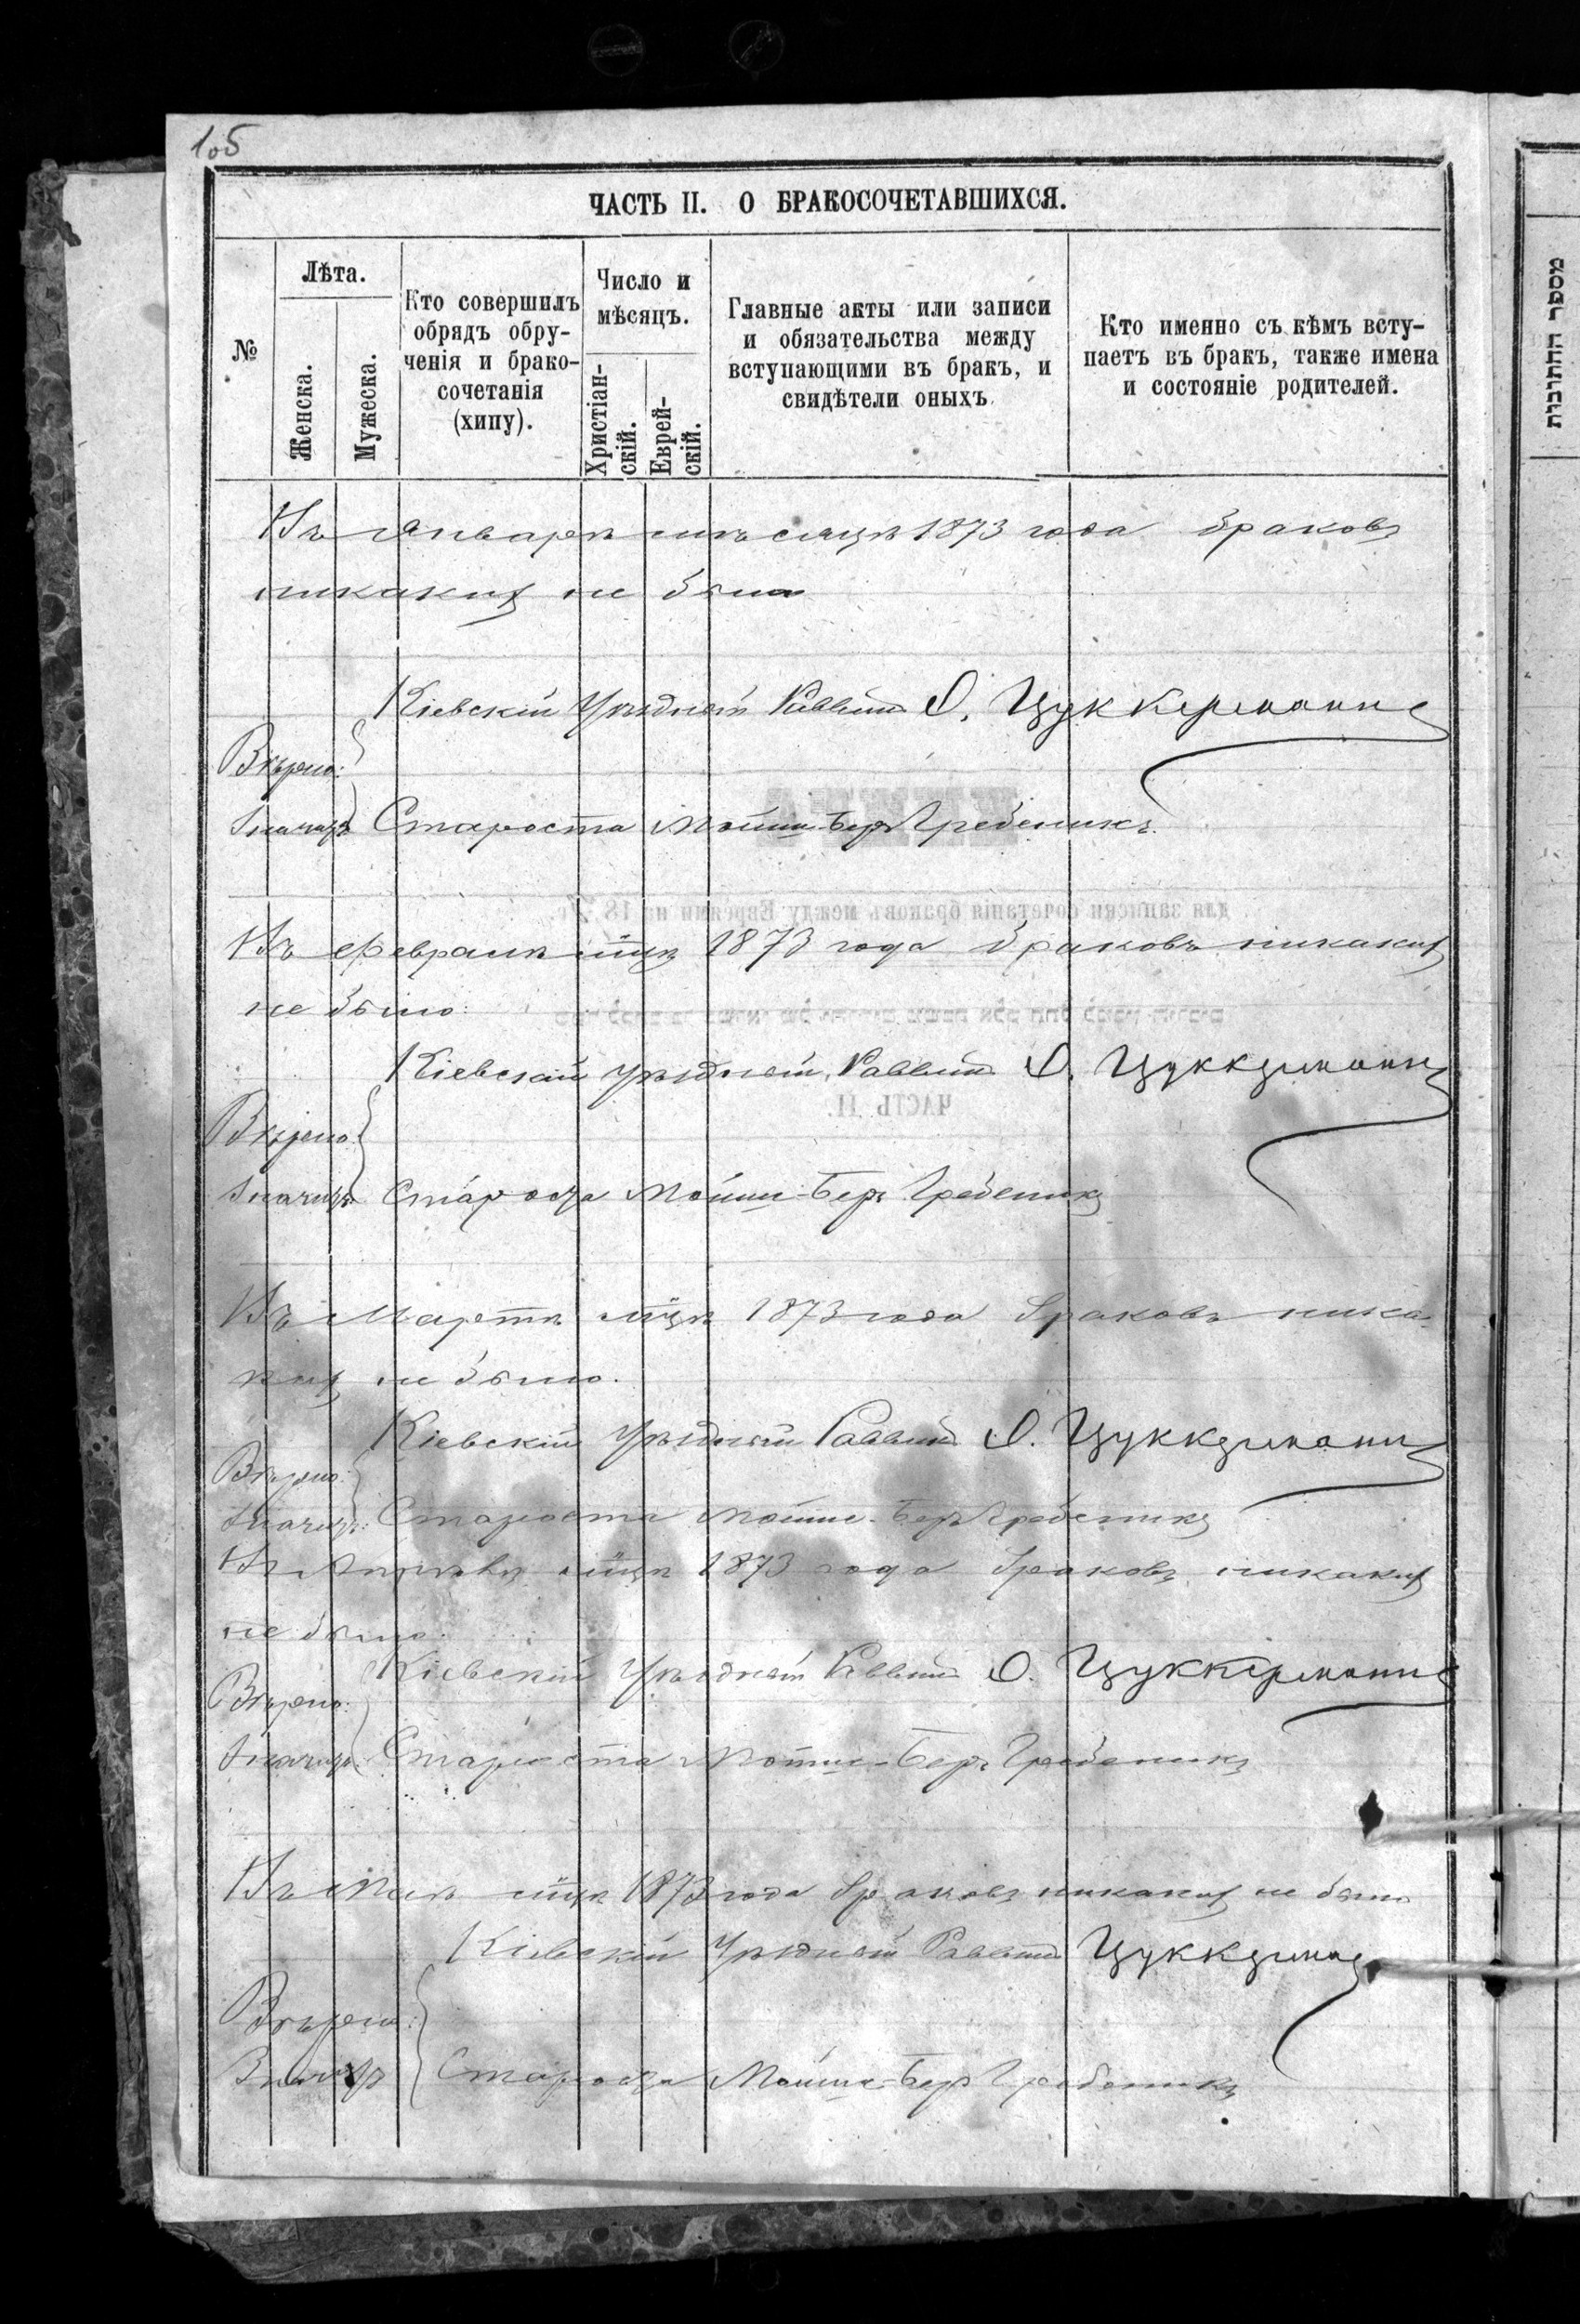 105
ЧАСТЬ II. О БРАКОСОЧЕТАВШИХСЯ.
№
Лѣта.
Женска.
Мужеска.
Кто совершилъ
обрядъ обру-
ченія и брако-
сочетанія
(хипу).
Число и
мѣсяцъ.
Христіан-
скій.
Еврей-
скій.
Главные акты или записи
и обязательства между
вступающими въ бракъ, и
свидѣтели оныхъ
Кто именно съ кѣмъ всту-
паетъ въ бракъ, также имена
и состояніе родителей.
Въ Январѣ мѣсяцѣ 1873 года браковъ
никакихъ не было
Кіевскій Уѣздный Раввинъ Цуккерманъ
Вѣрно:
Староста Мойше-Беръ Гребеникъ.
Въ Февралѣ м̃цѣ 1873 года браковъ никакихъ
не было.
Кіевскій Уѣздный Раввинъ Цуккерманъ
Вѣрно:
Староста Мойше-Беръ Гребеникъ
Въ Мартѣ м̃цѣ 1873 года браковъ ника-
кихъ не было.
Кіевскій Уѣздный Раввинъ Цуккерманъ
Вѣрно:
Староста Мойше-Беръ Гребеникъ
Въ м̃цѣ 1873 года браковъ никакихъ
не было.
Кіевскій Уѣздный Раввинъ Цуккерманъ
Вѣрно:
Староста Мойше-Беръ Гребеникъ
Въ Маѣ м̃цѣ 1873 года браковъ никакихъ не было
Кіевскій Уѣздный Раввинъ Цуккерманъ
Вѣрно:
Староста Мойше-Беръ Гребеникъ
מספר החתונות